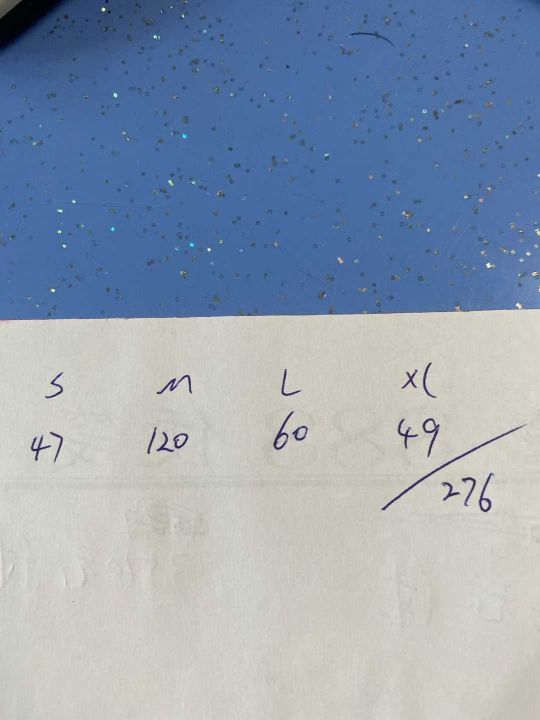 S M L XL
47 120 60 49
276